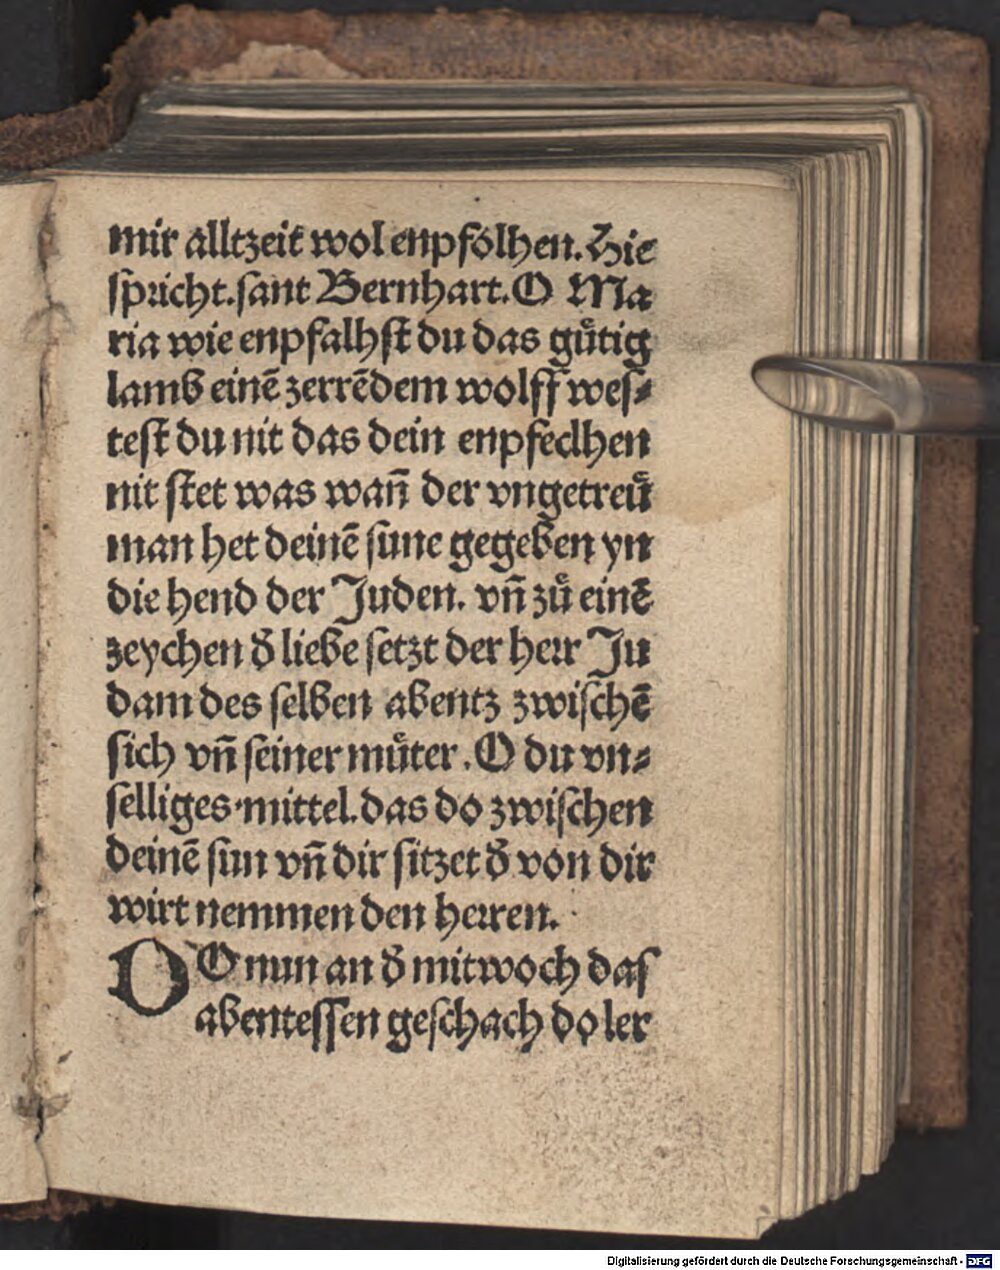 mir alltzeit wol enpfolhen. Hie
spricht. sant Bernhart. O Ma
ria wie enpfalhst du das gůtig
lamb einē zerrēdem wolff wes⸗
test du nit das dein enpfeclhen
nit stet was wañ der vngetreů
man het deinē sune gegeben yn
die hend der Juden. vñ zů einē
zeychen d̕ liebe setzt der herr Ju
dam des selben abentz zwischē
sich vñ seiner můter. O du vn⸗
selliges mittel. das do zwischen
deinē sun vñ dir sitzet d̕ von dir
wirt nemmen den herren.
DO nun an d̕ mitwoch das
abentessen geschach do ler
Digitalisierung gefördert durch die Deutsche Forschungsgemeinschaft - DFG